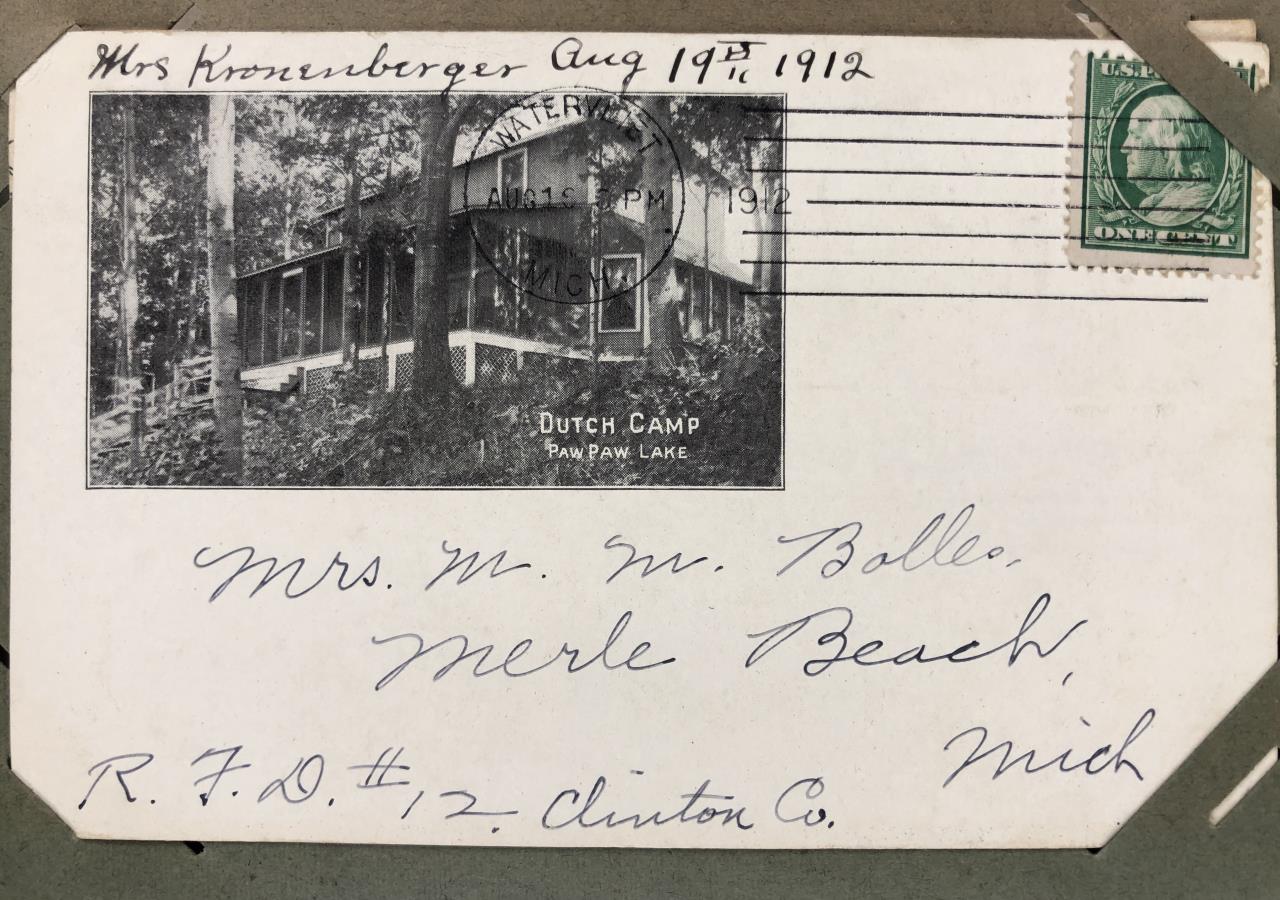 Mrs Kronenberger Aug 19th 1912
WATERVLIET
AUG 19 PM 1912
MICH.
ONE CENT
DUTCH CAMP
PAW PAW LAKE
Mrs. M. M. Bolles.
Merle Beach,
Mich
R. F. D. # 12. Clinton Co.